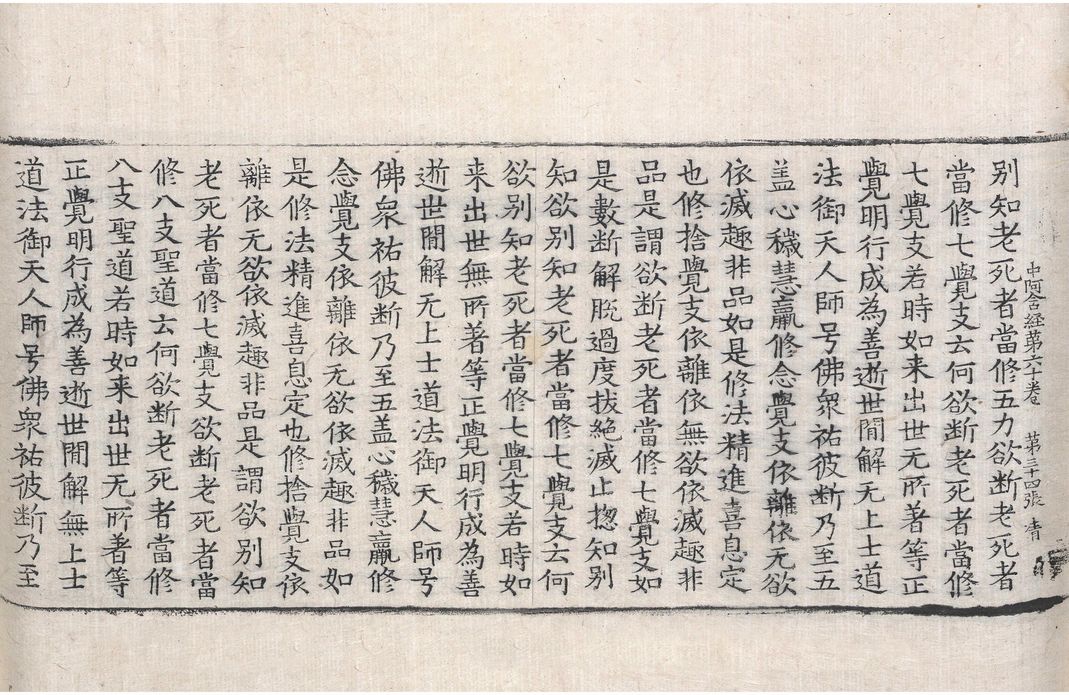 別知老死者當修五力欲断老死者
中阿含経第六十卷 第三十四張 清
當修七覺支云何欲断老死者當修
七覺支若時如来出世无所著等正
覺明行成為善逝世閒解无上士道
法御天人師号佛衆祐彼断乃至五
盖心穢慧羸修念覺支依離依无欲
依滅趣非品如是修法精進喜息定
也修捨覺支依離依無欲依滅趣非
品是謂欲断老死者當修七覺支如
是數断解脱過度拔絕滅止揔知別
知欲別知老死者當修七覺支云何
欲別知老死者當修七覺支若時如
来出世無所著等正覺明行成為善
逝世閒解无上士道法御天人師号
佛衆祐彼断乃至五盖心穢慧羸修
念覺支依離依无欲依滅趣非品如
是修法精進喜息定也修捨覺支依
離依无欲依滅趣非品是謂欲別知
老死者當修七覺支欲断老死者當
修八支聖道云何欲断老死者當修
八支聖道若時如来出世无所著等
正覺明行成為善逝世閒解無上士
道法御天人師号佛衆祐彼断乃至